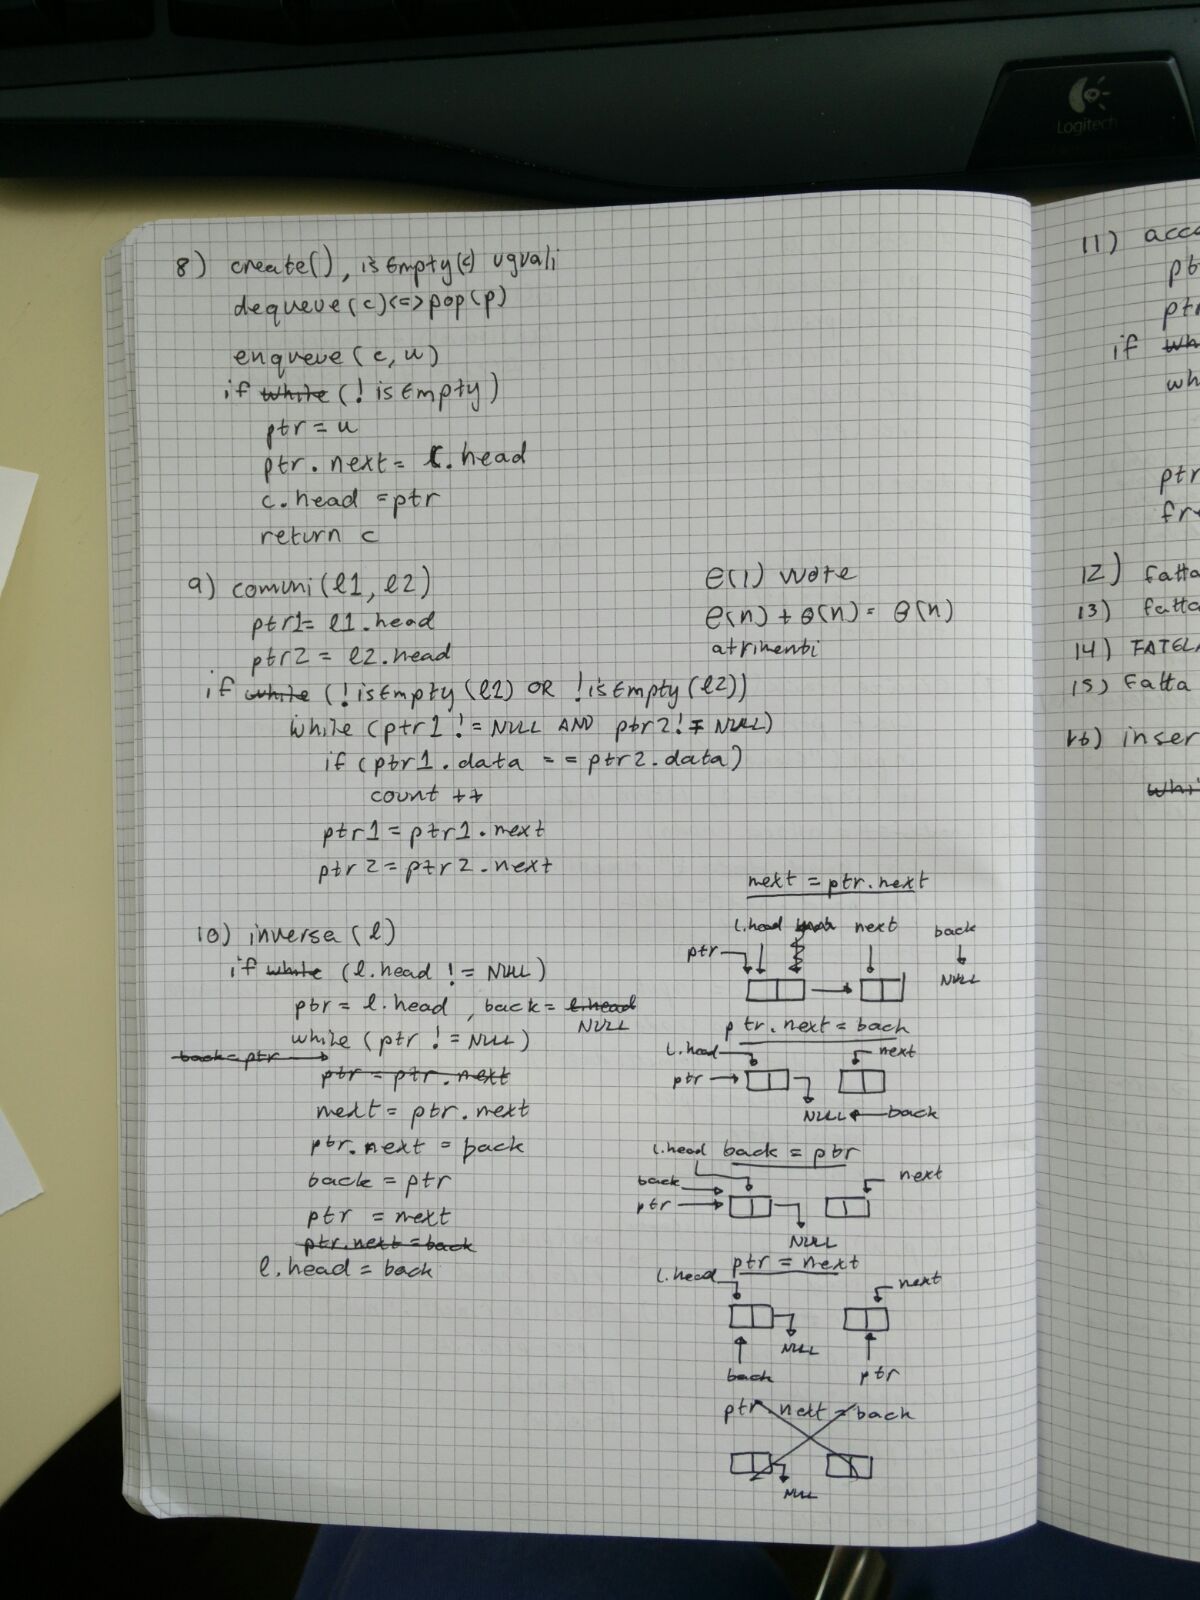 Logitech
8) create(), isEmpty(c) uguali
dequeue(c)<=>pop(p)
enqueue(c,u)
if while (!isEmpty)
ptr = u
ptr.next = c.head
c.head = ptr
return c
9) comuni(l1, l2)
ptr1 = l1.head
ptr2 = l2.head
if while (!isEmpty(l1) OR !isEmpty(l2))
while (ptr1 != NULL AND ptr2 != NULL)
if (ptr1.data == ptr2.data)
count ++
ptr1 = ptr1.next
ptr2 = ptr2.next
Θ(1) vuote
Θ(n) + Θ(n) = Θ(n)
atrimenti
10) inversa (l)
if while (l.head != NULL)
ptr = l.head, back = l.head
NULL
while (ptr != NULL)
back = ptr
ptr = ptr.next
next = ptr.next
ptr.next = back
back = ptr
ptr = next
ptr.next = back
l.head = back
next = ptr.next
l.head next back
ptr
NULL
ptr.next = back
l.head next
ptr
NULL back
l.head back = ptr
next
back
ptr
NULL
ptr = next
l.head next
NULL
back ptr
ptr.next = back
NULL
11)
pt
ptr
if wh
wh
ptr
fre
12) fatta
13) fatta
14) FATELA
15) Fatta
16) inser
whi